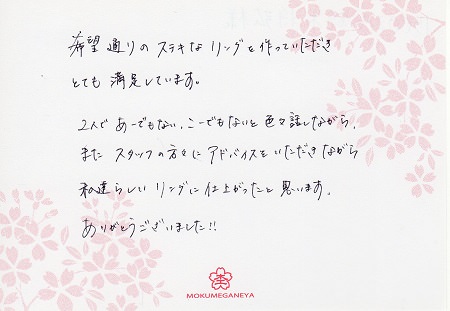 希望通りのステキなリングを作っていただき
とても満足しています。
2人であーでもない、こーでもないと色々話しながら、
また スタッフの方々にアドバイスをいただきながら
私達らしいリングに仕上がったと思います。
ありがとうございました!!
MOKUMEGANEYA